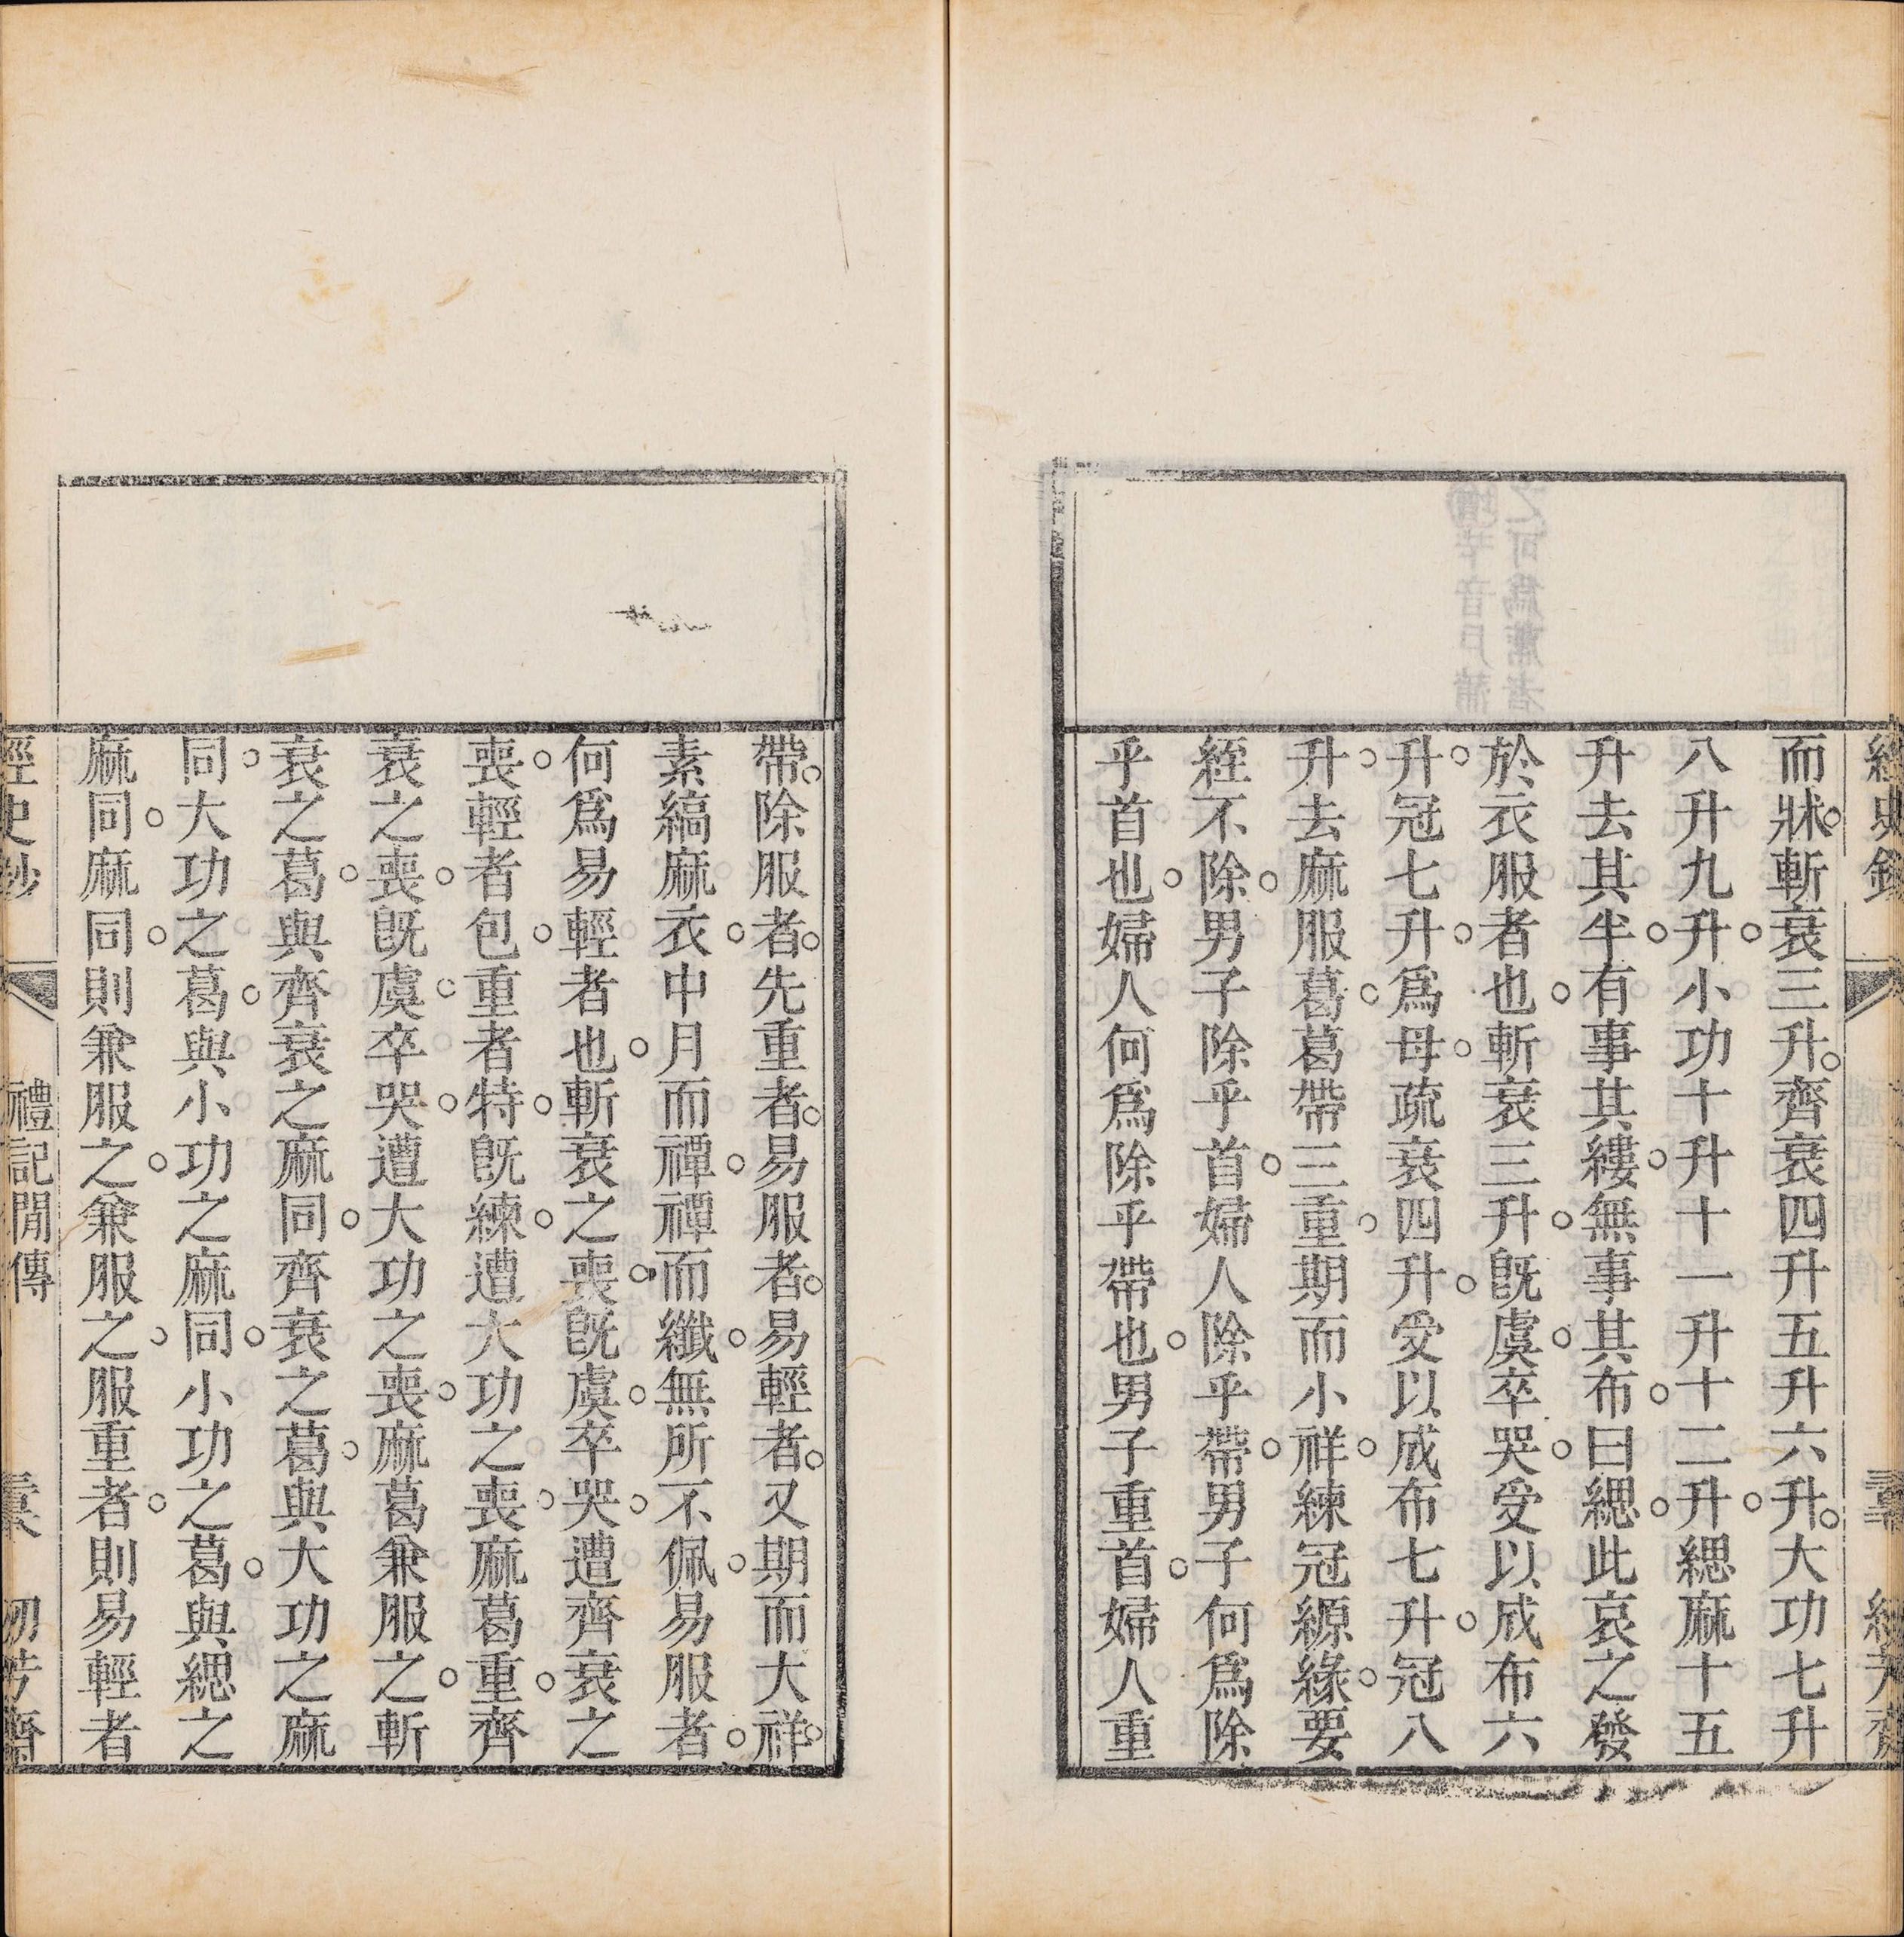 而牀。斬衰三升。齊衰四升五升六升。大功七升
八升九升。小功十升十一升十二升。緦麻十五
升去其半。有事其縷。無事其布。曰緦。此哀之發
於衣服者也。斬衰三升。旣虞卒哭。受以成布六
升。冠七升。爲母。疏衰四升。受以成布七升。冠八
升。去麻服葛。葛帶三重。期而小祥。練冠縓緣。要
絰不除。男子除乎首。婦人除乎帶。男子何爲除
乎首也。婦人何爲除乎帶也。男子重首。婦人重
帶。除服者。先重者。易服者。易輕者。又期而大祥。
素縞麻衣。中月而禫。禫而纖。無所不佩。易服者。
何爲易輕者也。斬衰之喪。旣虞。卒哭。遭齊衰之
喪。輕者包。重者特。旣練。遭大功之喪。麻葛重。齊
衰之喪。旣虞。卒哭。遭大功之喪。麻葛兼服之。斬
衰之葛。與齊衰之麻同。齊衰之葛。與大功之麻
同。大功之葛。與小功之麻同。小功之葛。與緦之
麻同。麻同。則兼服之。兼服之。服重者。則易輕者
經史鈔 禮記閒傳